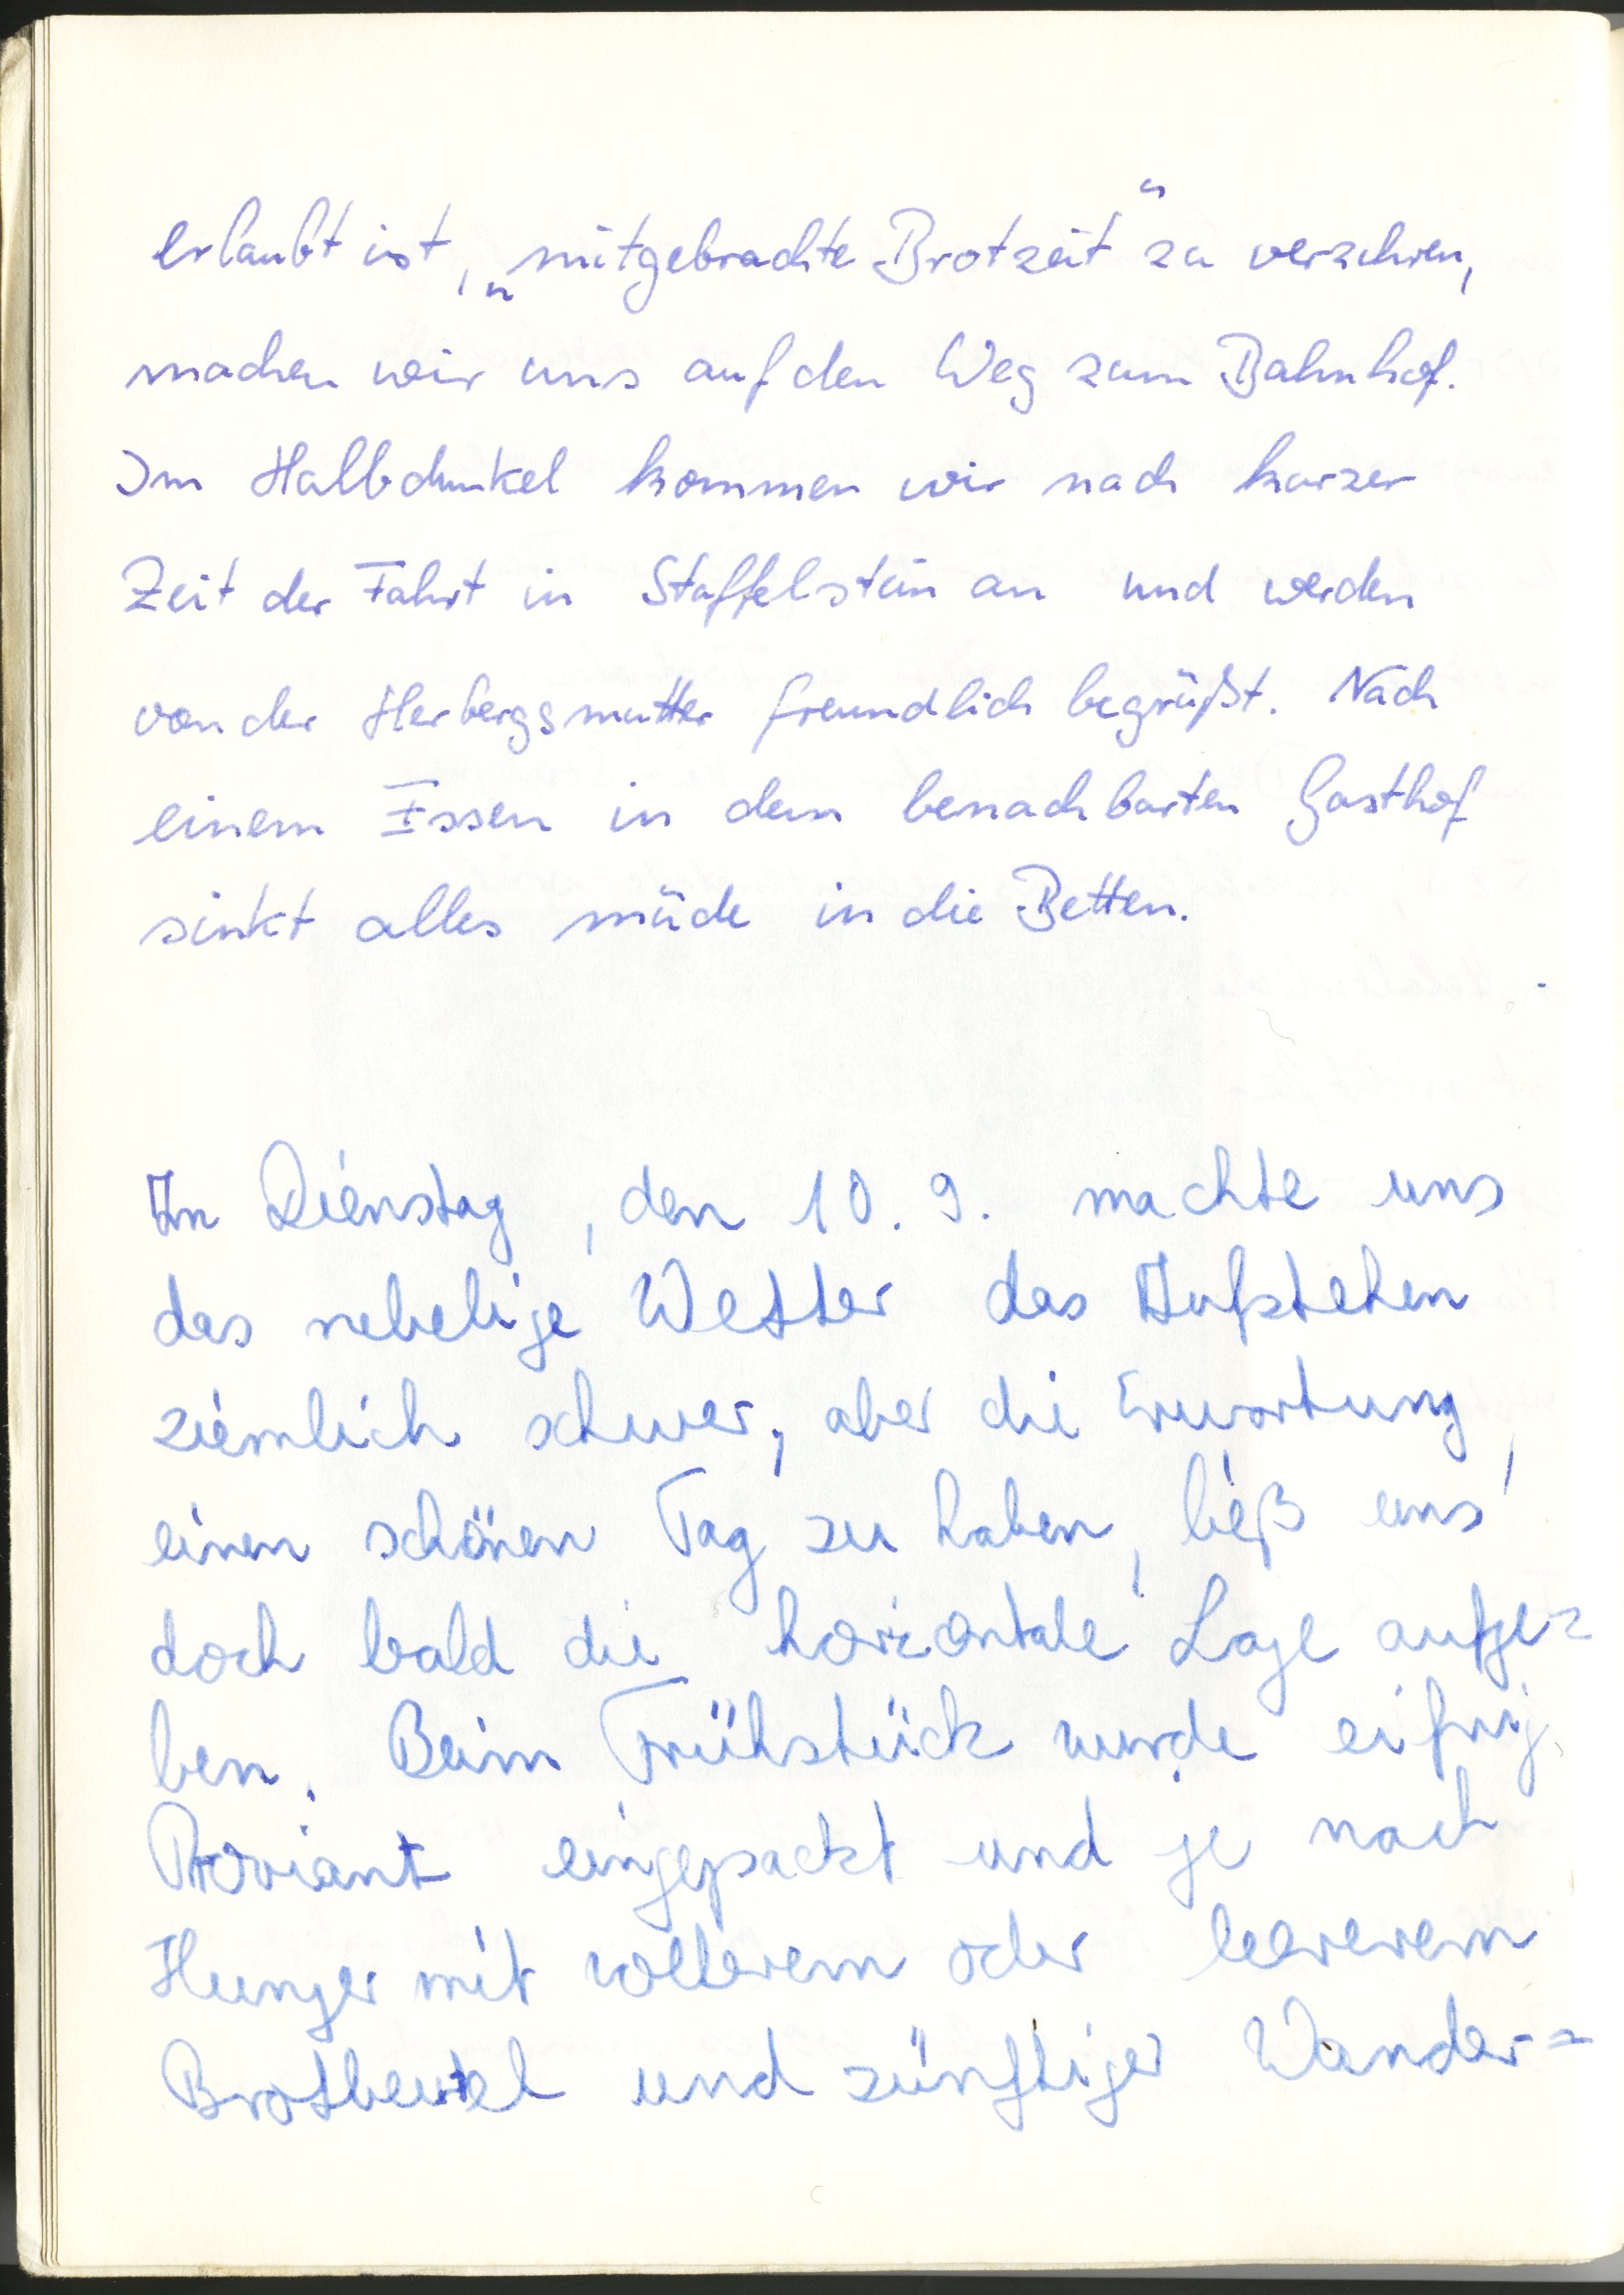 erlaubt ist, „mitgebrachte Brotzeit“ zu verzehren,
machen wir uns auf den Weg zum Bahnhof.
Im Halbdunkel kommen wir nach kurzer
Zeit der Fahrt in Staffelstein an und werden
von der Herbergsmutter freundlich begrüßt. Nach
einem Essen in dem benachbarten Gasthof
sinkt alles müde in die Betten.
Am Dienstag, den 10. 9. machte uns
das nebelige Wetter das Aufstehen
ziemlich schwer, aber die Erwartung,
einen schönen Tag zu haben, ließ uns
doch bald die horizontale Lage aufge=
ben. Beim Frühstück wurde eifrig
Proviant eingepackt und je nach
Hunger mit vollerem oder leererem
Brotbeutel und zünftiger Wander=